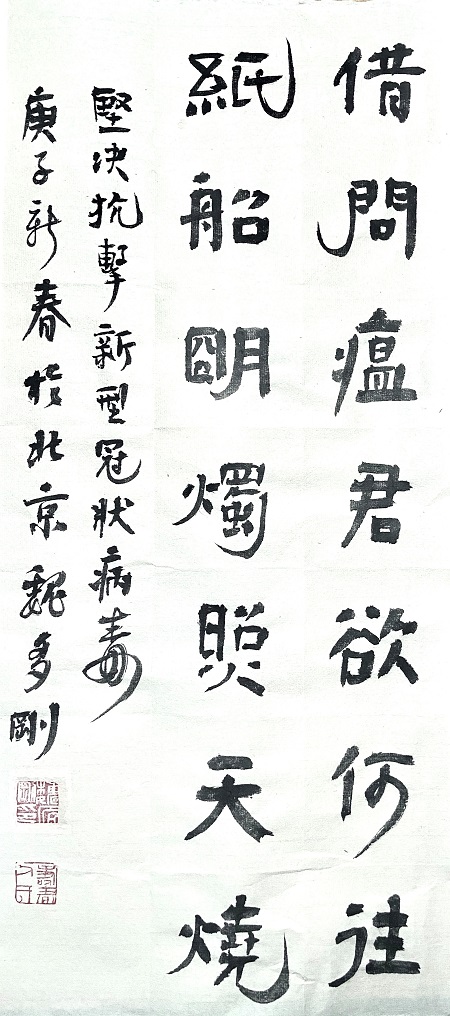 借問瘟君欲何往
紙船明燭照天燒
堅決抗擊新型冠狀病毒
庚子新春於北京魏多剛